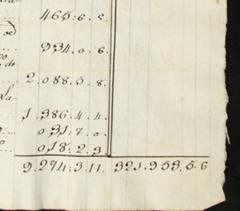 465:6.8.
934.0.6.
2.088.5.8.
1.386.4.4
031:7.0.
018:2.3
9.274:3.11. 321.953.5.6